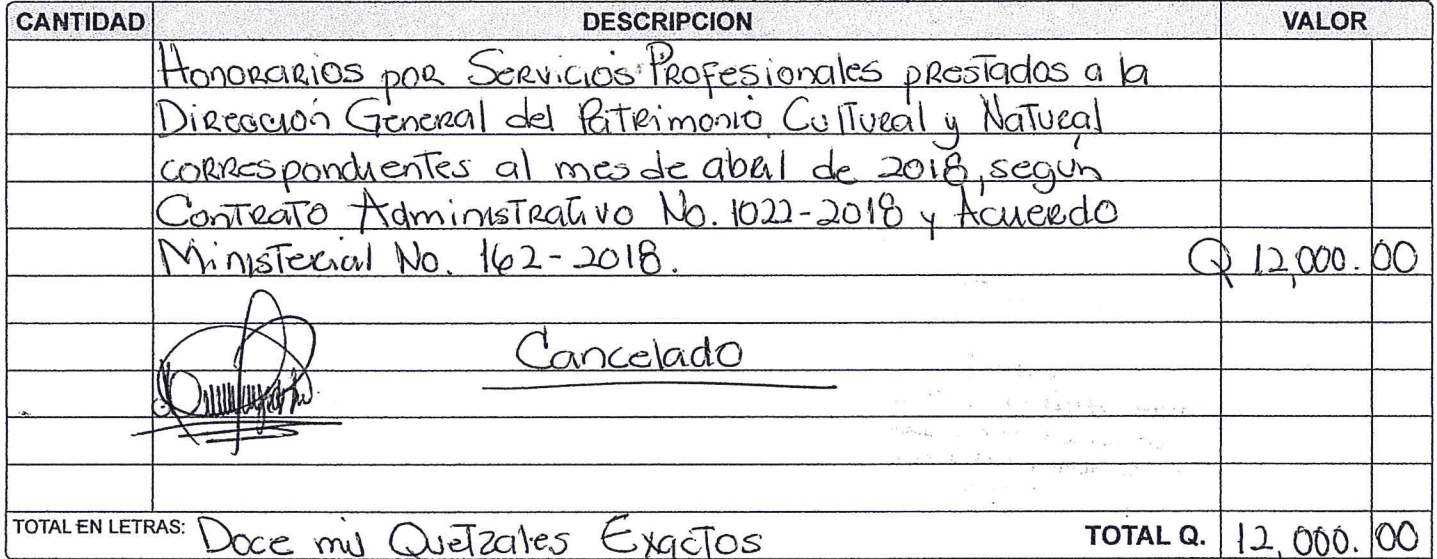 CANTIDAD DESCRIPCION VALOR
Honorarios por Servicios Profesionales prestados a la
Dirección General del Patrimonio Cultural y Natural
correspondientes al mes de abril de 2018, según
Contrato Administrativo No. 1022-2018 y Acuerdo
Ministerial No. 162-2018. Q 12,000.00
Cancelado
TOTAL EN LETRAS: Doce mil Quetzales Exactos TOTAL Q. 12,000.00